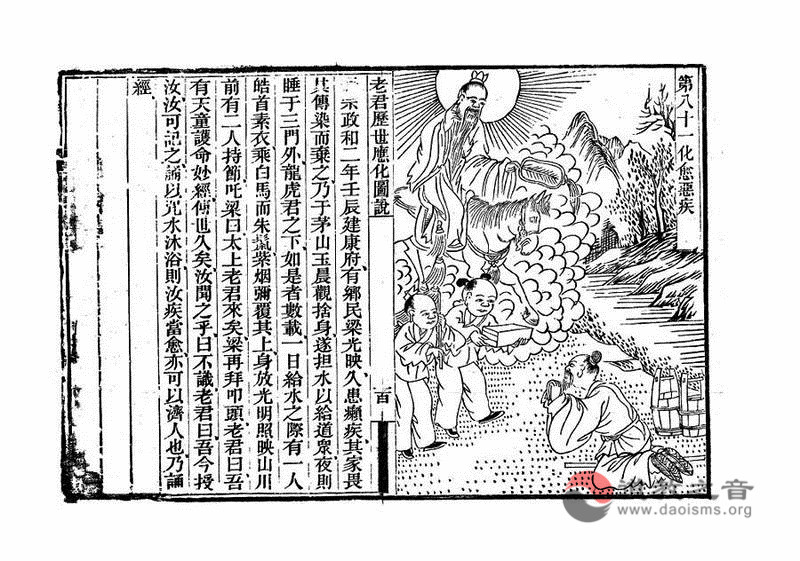 第八十一化愈惡疾
老君歷世應化圖說
宗政和二年壬辰建康府有鄉民梁光映久患癩疾其家畏
其傳染而棄之乃于茅山玉晨觀捨身遂担水以給道眾夜則
睡于三門外龍虎君之下如是者數載一日給水之際有一人
皓首素衣乘白馬而朱鬣紫烟彌覆其上身放光明照映山川
前有二人持節叱梁曰太上老君來矣梁再拜叩頭老君曰吾
有天童護命妙經傳世久矣汝聞之乎曰不識老君曰吾今授
汝汝可記之誦以咒水沐浴則汝疾當愈亦可以濟人也乃誦
經
百
道教之音
www.daoisms.org